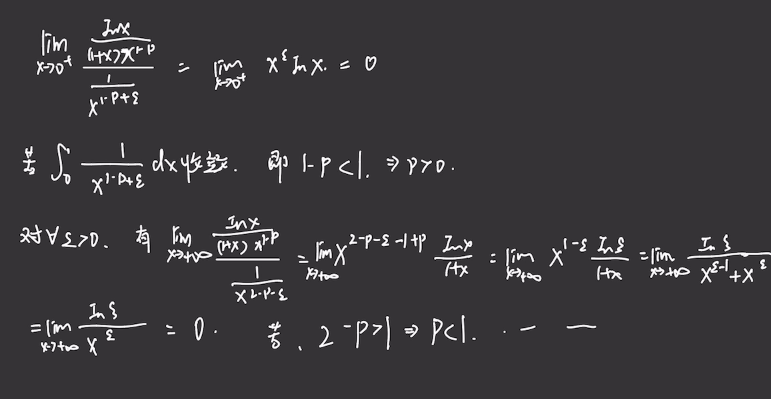 lim_{x→0⁺} \frac{\frac{lnx}{(1+x)x^{1-p}}}{\frac{1}{x^{1-p+ε}}} = lim_{x→0⁺} x^ε ln x. = 0
若 ∫_0^1 \frac{1}{x^{1-p+ε}} dx收敛. 即 1-p<1. ⇒ p>0.
对∀ε>0. 有 lim_{x→+∞} \frac{\frac{lnx}{(1+x)x^{1-p}}}{\frac{1}{x^{2-p-ε}}} = lim_{x→+∞} x^{2-p-ε-1+p} \frac{lnx}{1+x} = lim_{x→+∞} x^{1-ε} \frac{lnξ}{1+x} = lim_{x→+∞} \frac{lnξ}{x^{ε-1}+x^ε}
= lim_{x→+∞} \frac{lnξ}{x^ε} = 0. 若. 2-p>1 ⇒ p<1.